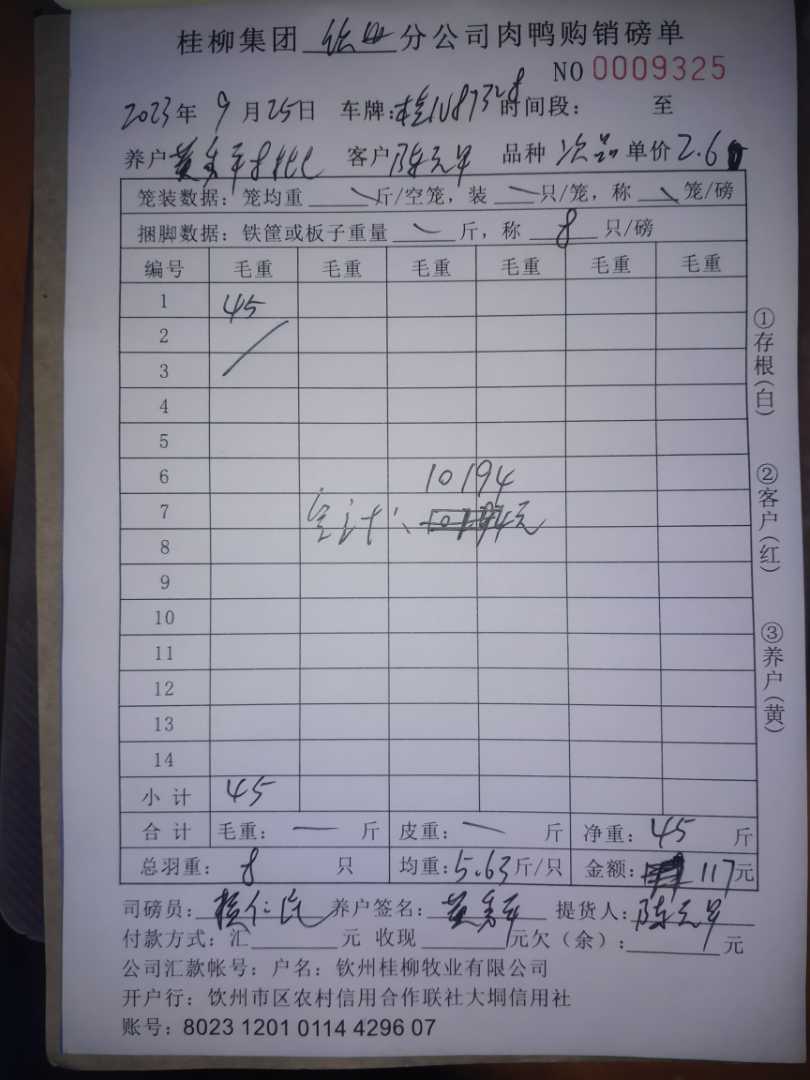 桂柳集团 钦州 分公司肉鸭购销磅单
NO 0009325
2023年 9 月 25日 车牌: 时间段: 至
养户 客户 陈元早 品种 次品 单价 2.6
笼装数据: 笼均重 斤/空笼, 装 只/笼, 称 笼/磅
捆脚数据: 铁筐或板子重量 斤, 称 8 只/磅
编号 毛重 毛重 毛重 毛重 毛重 毛重
1 45
2
3
4
5
6 10194
7 合计:
8
9
10
11
12
13
14
小 计 45
合 计 毛重: — 斤 皮重: — 斤 净重: 45 斤
总羽重: 8 只 均重: 5.63 斤/只 金额: 117元
司磅员: 养户签名: 提货人: 陈元早
付款方式: 汇 元 收现 元欠(余): 元
公司汇款帐号: 户名: 钦州桂柳牧业有限公司
开户行: 饮州市区农村信用合作联社大垌信用社
账号: 8023 1201 0114 4296 07
①存根(白)
②客户(红)
③养户(黄)